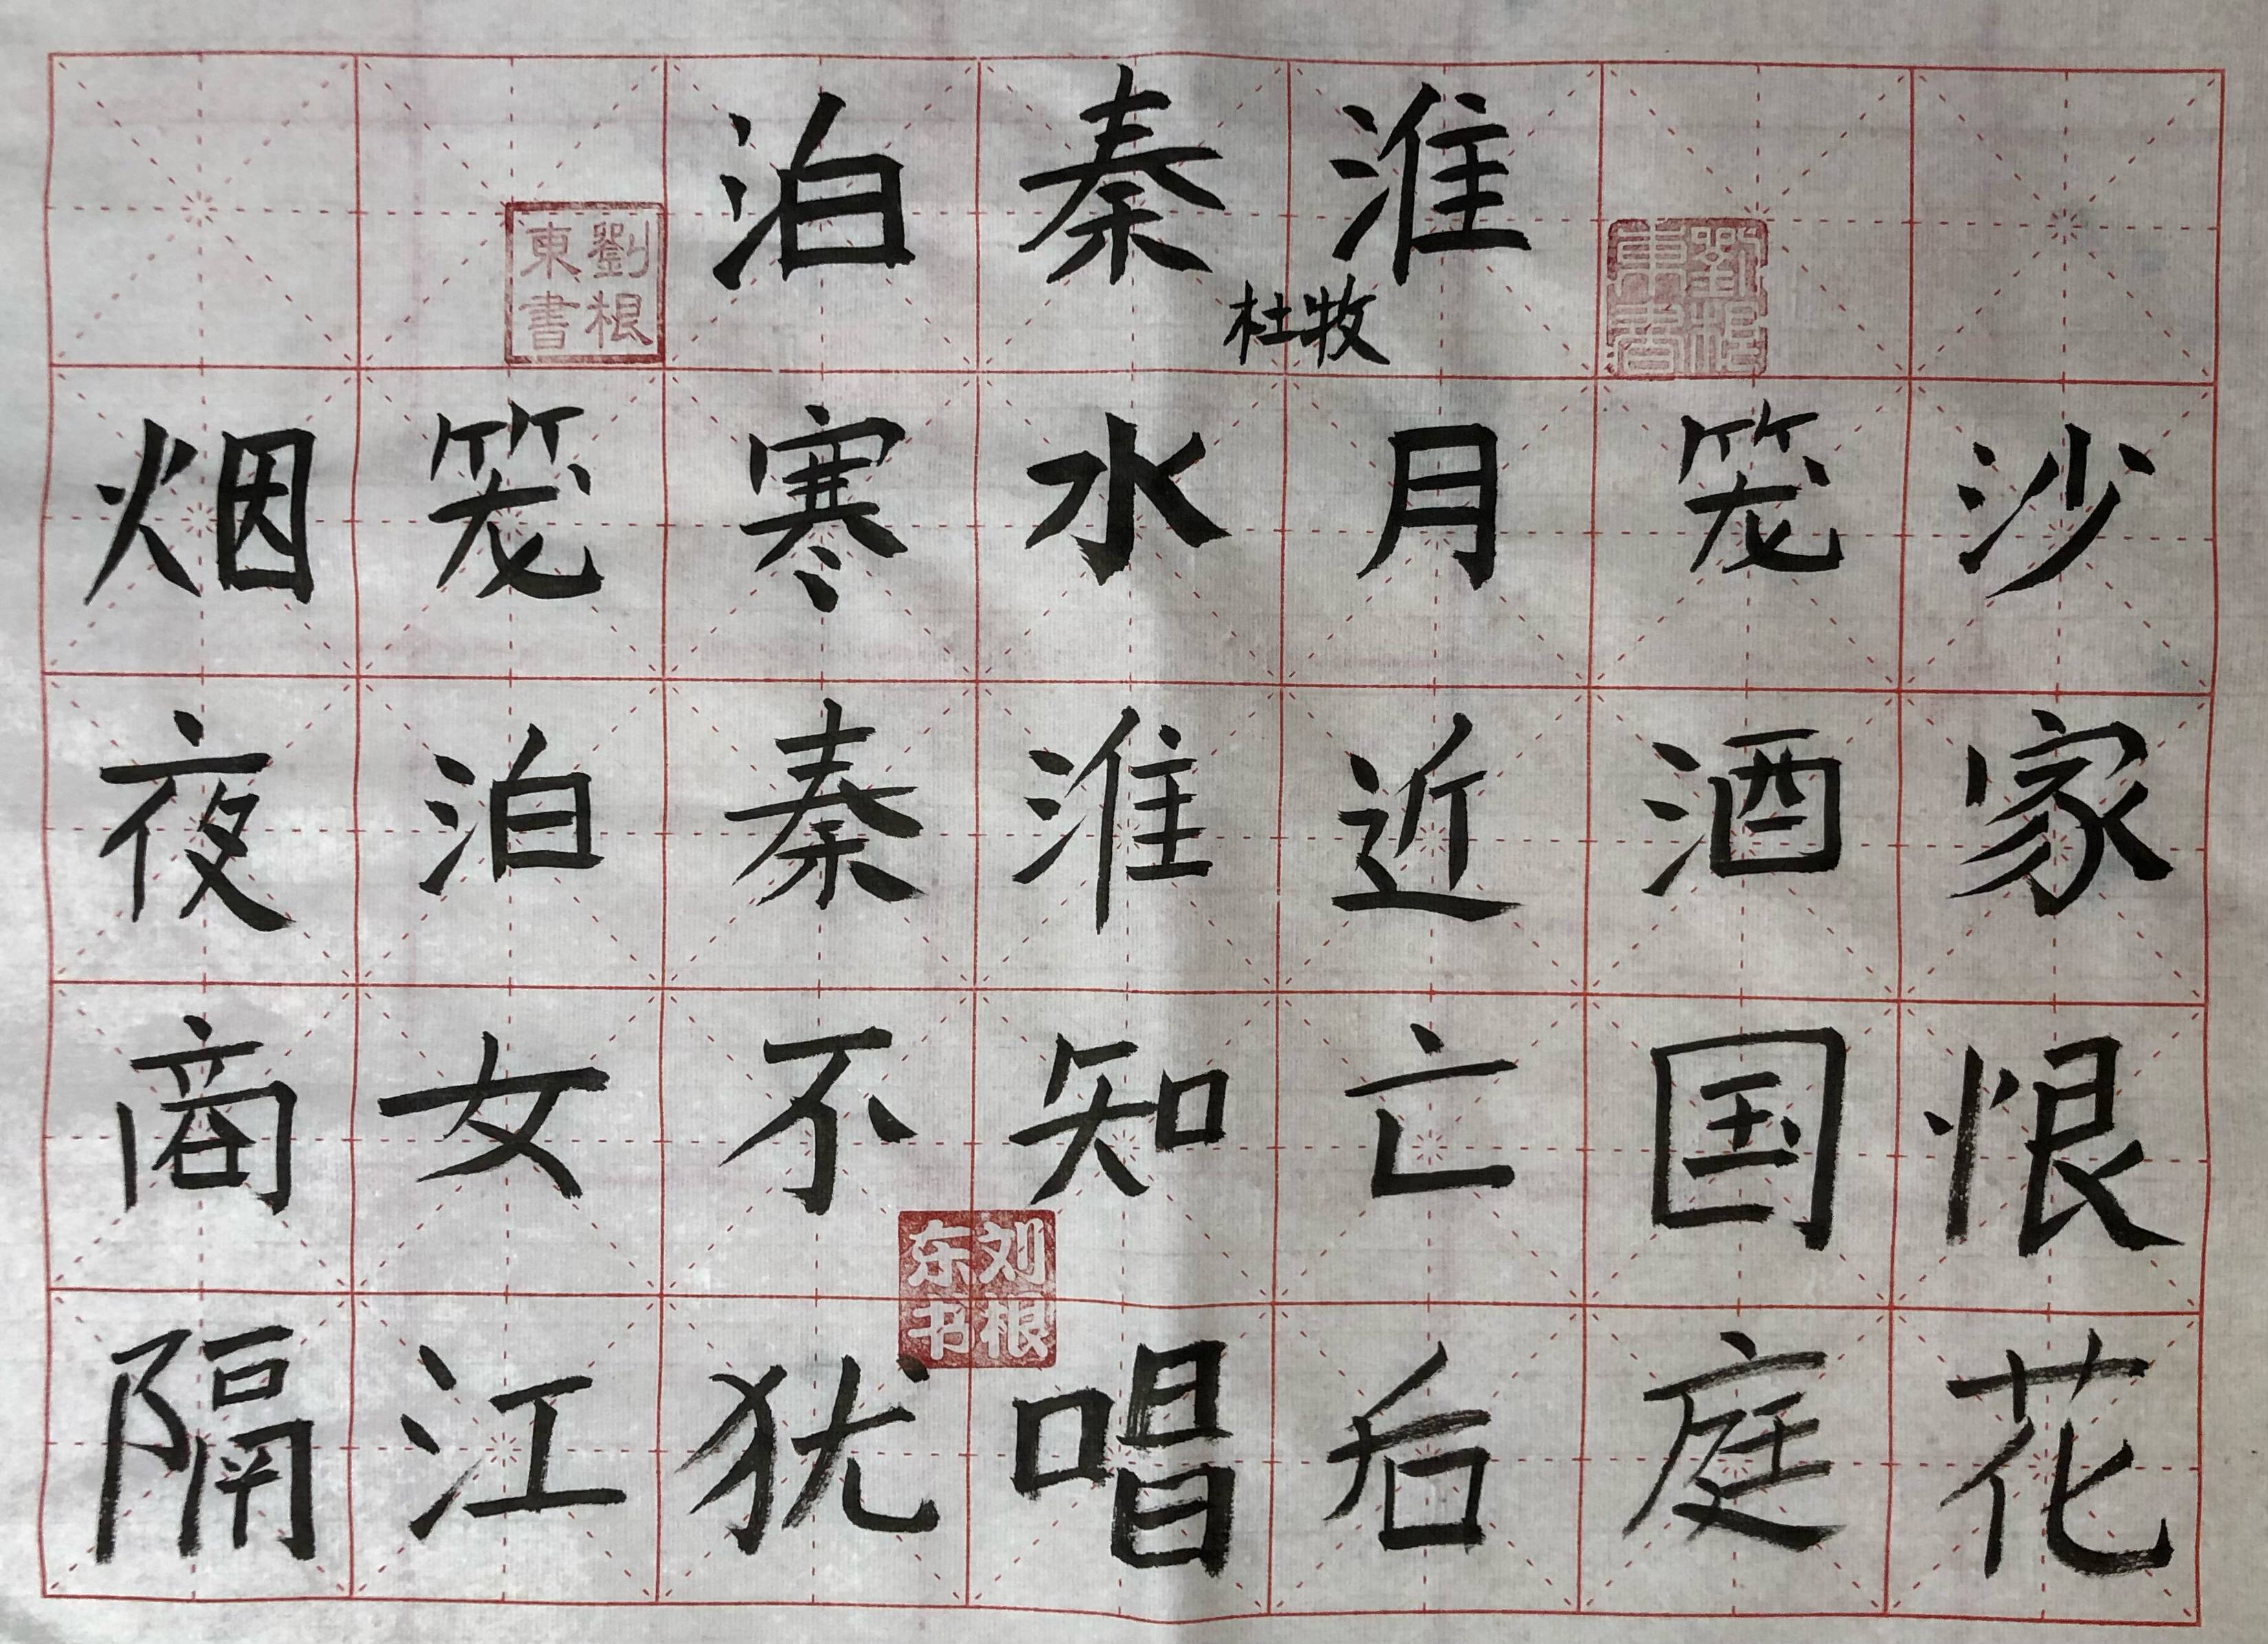 泊秦淮
杜牧
劉根東書
劉根東書
烟笼寒水月笼沙
夜泊秦淮近酒家
商女不知亡国恨
刘根东书
隔江犹唱后庭花